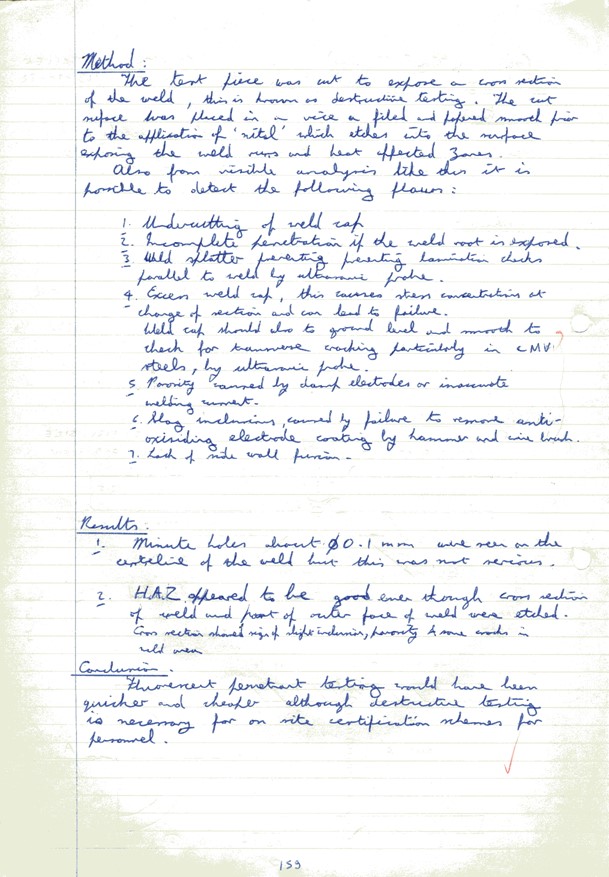 Method :
The test piece was cut to expose a cross section
of the weld, this is known as destructive testing. The cut
surface was placed in a vice a filed and papered smooth prior
to the application of 'nital' which etches into the surface
exposing the weld runs and heat affected zones.
Also from visible analysis like this it is
possible to detect the following flaws :
1. Undercutting of weld cap
2. Incomplete penetration if the weld root is exposed.
3 Weld splatter preventing preventing lamination checks
parallel to weld by ultrasonic probe.
4. Excess weld cap, this causes stress concentrations at
change of section and can lead to failure.
Weld cap should also to ground level and smooth to
check for transverse cracking particularly in CMV ?
steels, by ultrasonic probe.
5 Porosity caused by damp electrodes or inaccurate
welding current.
6. Slag inclusions, caused by failure to remove anti-
oxisiding electrode coating by hammer and wire brush.
7. Lack of side wall fusion.
Results :
1. Minute holes about Ø0.1 mm were seen on the
centreline of the weld but this was not serious.
2. H.A.Z. appeared to be good even though cross section
of weld and part of outer face of weld were etched.
Cross section showed sign of slight inclusion, porosity & some cracks in
weld area
Conclusion.
Fluorescent penetrant testing would have been
quicker and cheaper although destructive testing
is necessary for on site certification schemes for
personnel.
159